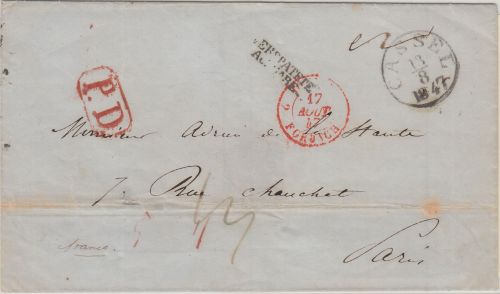 P.D.
CASSEL
13
8
1847
17
AOUT
47
2 FORBACH
Monsieur Adrien de
7, Rue Chauchat
Paris
franco.